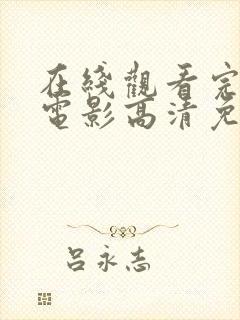 在綫觀看完
電影高清免
吕永志